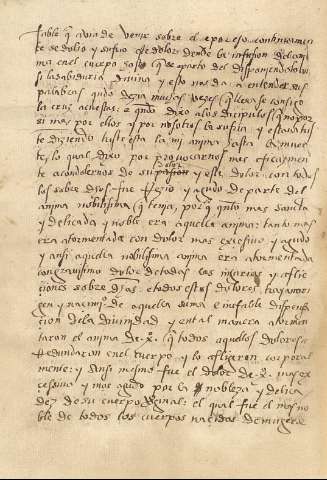 table q̃ avia de venir sobre el e por eso continuamẽte
se dolio y sufrio q̃l dolor desde la infusion del ani
ma en el cuerpo
si la sabiduria divina y esto nos da a entender sus
palabras q̃ndo dezia muchas vezes q̃ llevase consigo
la cruz acuestas: e q̃ndo dixo a los dicipulos q̃ no por
si mas por ellos y por nosotros la sufria y estava tris
te diziendo triste esta la mi anima hasta la muer
te, lo qual dixo por provocarnos mas eficazmente
a condolernos de su dolor y este dolor con todos
los sobre dichos fue rezio y agudo de parte del
anima nobilisima q̃ tenia, porq̃ q̃nto mas sancta
y delicada y noble era aquella anima: tanto mas
era atormentada con dolor mas excesivo y agudo
y ansi aquella nobilisima anima era atormentada
con gravisimo dolor de todas las injurias y aflic
ciones sobre dichas. e todos estos dolores trayan ori
gen y nacimiẽ de aquella suma e inefable dispensa
cion de la divinidad y en tal manera atormen
taron el anima de x̃. q̃ todos aquellos dolores
redundaron en el cuerpo y lo afligeron corporal
mente: y ansi mesmo fue el dolor de x̃. mas ex
cesivo y mas agudo por la nobleza y delica
dez de su cuerpo virginal: el qual fue el mas no
ble de todos los cuerpos nacidos de muger e